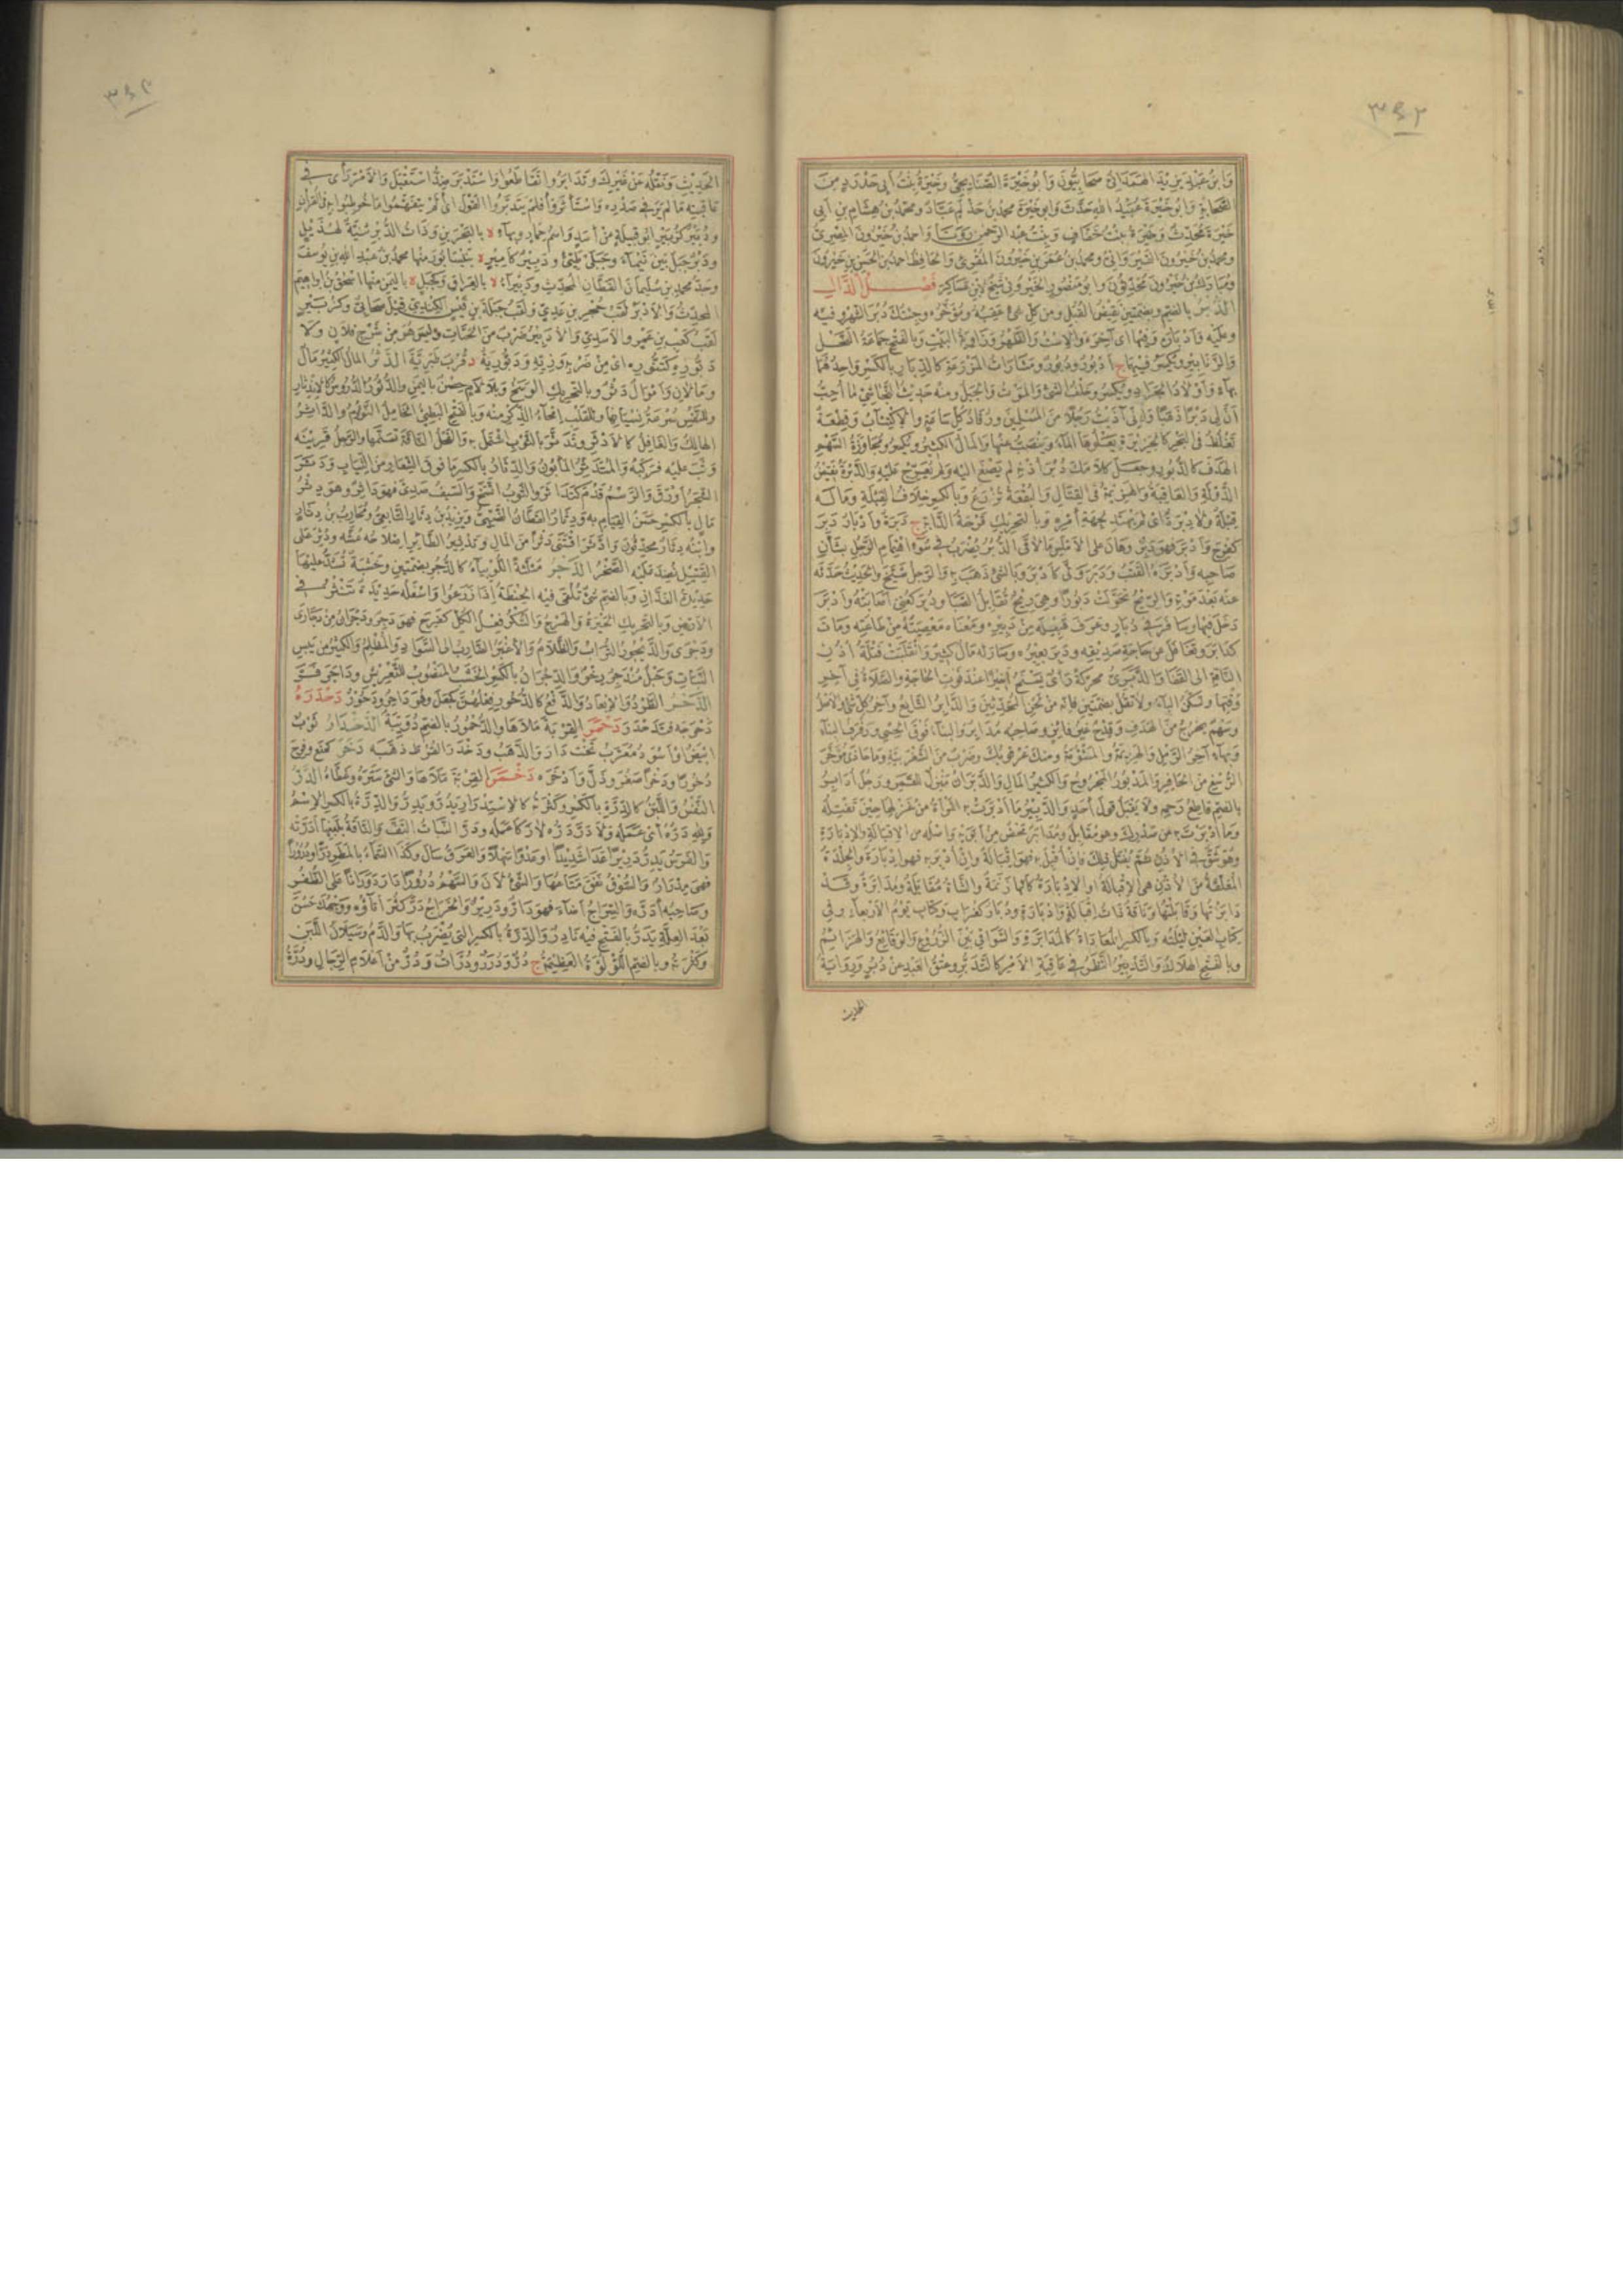 ٣٤٢
وَابنُ عبدِ بنِ يزيدَ الهَمْدانيُّ صحابيُّونَ وأبو خَيْرَةَ الصُّنابِحِيُّ وخَيْرَةُ بنتُ أبي حَدْرَدٍ من
الصَّحابةِ وأبو خَيْرَةَ عُبَيْدُ اللهِ حَدَّثَ وأبو خَيْرَةَ محمدُ بنُ حَذْلَمٍ عَبَّادٌ ومحمدُ بنُ هشامِ بنِ أبي
خَيْرَةَ مُحَدِّثٌ وخَيْرَةُ بنتُ خَفَافٍ وبنتُ عبدِ الرَّحمنِ رَوَتَا وأحمدُ بنُ خَيْرُونَ المصريُّ
ومحمدُ بنُ خَيْرُونَ القَيْرَوانيُّ ومحمدُ بنُ عُمَرَ بنِ خَيْرُونَ المُقْرِئُ والحافظُ أحمدُ بنُ الحسنِ بنِ خَيْرُونَ
ومُبارَكُ بنُ خَيْرُونَ مُحَدِّثُونَ وأبو منصورٍ الخَيْرُونِيُّ شيخٌ لابنِ عَساكِرَ فَصْلُ الدَّالِ
الدُّبْرُ بالضَّمِّ وبضَمَّتَيْنِ نَقِيضُ القُبُلِ ومن كُلِّ شيءٍ عَقِبُهُ ومُؤَخَّرُهُ وجِئْتُكَ دُبُرَ الشَّهْرِ وفيهِ
وعليهِ وأَدْبارَهُ وفيها أي آخِرَهُ والاِسْتُ والظَّهْرُ وزَاوِيَةُ البَيْتِ وبالفَتْحِ جَمَاعَةُ النَّحْلِ
والزَّنابيرِ ويُكْسَرُ فيهِما ج أَدْبُرٌ ودُبُورٌ ومَشَارَاتُ المَزْرَعَةِ كالدِّبَارِ بالكسرِ واحِدُهُمَا
بهاءٍ وأولادُ الجَرَادِ ويُكْسَرُ وخَلْفُ الشيءِ والمَوْتُ والجَبَلُ ومنهُ حديثُ النَّجاشِيِّ ما أُحِبُّ
أنَّ لي دَبْرًا ذَهَبًا وأنِّي آذَيْتُ رَجُلًا من المُسْلِمِينَ ورُقَادُ كُلِّ ساعةٍ والاِكْتِتابُ وقِطْعَةٌ
تَغْلُظُ في البحرِ كالجزيرةِ يَعْلُوها الماءُ ويَنْضُبُ عنها والمالُ الكثيرُ ويُكْسَرُ ومُجاوَزَةُ السَّهْمِ
الهَدَفَ كالدُّبُورِ وجَعَلَ كلامَكَ دَبْرَ أُذُنِهِ لم يُصْغِ إليهِ ولم يُعَرِّجْ عليهِ والدَّبْرَةُ نَقِيضُ
الدَّوْلَةِ والعاقِبَةُ والهَزِيمةُ في القِتالِ والبُقْعَةُ تُزْرَعُ وبالكسرِ خِلافُ القِبْلَةِ وما لَهُ
قِبْلَةٌ ولا دِبْرَةٌ أي لم يَهْتَدِ لِجِهَةِ أمرِهِ وبالتَّحريكِ قَرْحَةُ الدَّابَّةِ ج دَبَرٌ وأَدْبَارٌ دَبِرَ
كفَرِحَ وأَدْبَرَ فهو دَبِرٌ وهانَ على الأَمْلَسِ ما لاقَى الدَّبِرُ يُضْرَبُ في سُوءِ اهْتِمامِ الرَّجُلِ بشأنِ
صاحبِهِ وأَدْبَرَهُ القَتَبُ ودَبَرَ وَلَّى كأَدْبَرَ وبالشيءِ ذَهَبَ به والرَّجُلُ شَيَّخَ والحديثَ حَدَّثَهُ
عنهُ بعدَ موتِهِ والرِّيحُ تَحَوَّلَتْ دَبُورًا وهي رِيحٌ تُقابِلُ الصَّبَا ودُبِرَ كَعُنِيَ أصابَتْهُ وأَدْبَرَ
دَخَلَ فيها وسافَرَ في دُبَارٍ وعَرَفَ قَبِيلَهُ من دَبِيرِهِ ومَعْناهُ مَعْصِيَتَهُ من طاعَتِهِ ومَاتَ
كَدَابَرَ وتَغَافَلَ عن حاجةِ صديقِهِ ودَبِرَ بَعِيرُهُ وصارَ لهُ مالٌ كثيرٌ وانْقَلَبَتْ فَتْلَةُ أُذُنِ
النَّاقةِ إلى القَفَا والدَّبَرِيُّ محركةً رأيٌ يَسْنَحُ أخيرًا عندَ فَوْتِ الحاجةِ والصَّلاةُ في آخِرِ
وقتِها وتُسَكَّنُ الباءُ ولا تَقُلْ بضَمَّتَيْنِ فإنَّهُ من لَحْنِ المُحَدِّثِينَ والدَّابِرُ التَّابِعُ وآخِرُ كُلِّ شيءٍ والأصلُ
وسَهْمٌ يَخْرُجُ من الهَدَفِ وقِدْحٌ غيرُ فائزٍ وصاحِبُهُ مُدَابِرٌ والبِنَاءُ فوقَ الحِسْيِ ورَفْرَفُ البِنَاءِ
وبهاءٍ آخِرُ الرَّمْلِ والهَزِيمةُ والمَشْؤُومَةُ ومنكَ عُرْقُوبُكَ وضَرْبٌ من الشَّغْزَبِيَّةِ وما حاذَى مُؤَخَّرَ
الرُّسْغِ من الحافِرِ والمَدْبُورُ المَجْرُوحُ والكثيرُ المالِ والدَّبَرَانُ مَنْزِلٌ للقمرِ ورجُلٌ أُدَابِرٌ
بالضَّمِّ قاطِعٌ رَحِمَهُ ولا يَقْبَلُ قولَ أحدٍ والدَّبِيرُ ما أَدْبَرَتْ به المرأةُ من غَزْلِها حينَ تَفْتِلُهُ
وما أَدْبَرْتَ به عن صَدْرِكَ وهو مُقابَلٌ ومُدَابَرٌ مَحْضٌ من أبَوَيْهِ وأصلُهُ من الإقْبَالَةِ والإدْبَارَةِ
وهو شَقٌّ في الأُذُنِ ثم يُفْتَلُ ذلكَ فإن أُقْبِلَ به فهو إقْبَالَةٌ وإن أُدْبِرَ به فهو إدْبَارَةٌ والجِلْدَةُ
المُعَلَّقَةُ من الأُذُنِ هي الإقْبَالَةُ أو الإدْبَارَةُ كأنَّها زَنَمَةٌ والشَّاةُ مُقَابَلَةٌ ومُدَابَرَةٌ وقد
دَابَرْتُها وقابَلْتُها وناقةٌ ذاتُ إقْبَالَةٍ وإدْبَارَةٍ ودُبَارٌ كغُرَابٍ وكِتَابٍ يومُ الأربعاءِ وفي
كتابِ العَيْنِ لَيْلَتُهُ وبالكسرِ المُعَادَاةُ كالمُدَابَرَةِ والسَّواقي بينَ الزُّرُوعِ والوَقائِعُ والهَزَائِمُ
وبالفتحِ الهَلاكُ والتَّدْبِيرُ النَّظَرُ في عاقِبَةِ الأمرِ كالتَّدَبُّرِ وعِتْقُ العَبْدِ عن دُبُرٍ ورِوَايَةُ
الحديث
٣٤٣
الحديثِ ونَقْلُهُ عن غيرِكَ وتَدَابَرُوا تَقَاطَعُوا واسْتَدْبَرَ ضِدُّ اسْتَقْبَلَ والأمرَ رَأَى في
عاقِبَتِهِ ما لم يَرَ في صَدْرِهِ واسْتَأْثَرَ وأفلم يَدَّبَّرُوا القولَ أي ألم يَتَفَهَّمُوا ما خُوطِبُوا به في القرآنِ
ودُبَيْرٌ كزُبَيْرٍ أبو قبيلةٍ من أَسَدٍ واسمُ حِمَارٍ وبهاءٍ ة بالبَحْرَيْنِ وذاتُ الدَّبْرِ ثَنِيَّةٌ لهُذَيْلٍ
ودَبْرٌ جبلٌ بينَ تَيْمَاءَ وجَبَلَيْ طَيِّئٍ ودَبِيرٌ كأميرٍ ة بنَيْسَابُورَ منها محمدُ بنُ عبدِ اللهِ بنِ يوسفَ
وجَدُّ محمدِ بنِ سليمانَ القَطَّانِ المحدِّثِ ودَبِيرَا ة بالعراقِ وكجَبَلٍ ة باليمنِ منها إسحقُ بنُ إبراهيمَ
المحدِّثُ والأَدْبَرُ لَقَبُ حُجْرِ بنِ عَدِيٍّ ولَقَبُ جَبَلَةَ بنِ قَيْسٍ الكِنْدِيِّ قيلَ صحابيٌّ وكزُبَيْرٍ
لَقَبُ كعبِ بنِ عمرٍو الأَسَدِيِّ والأُدَيْبِرُ ضَرْبٌ من الحَيَّاتِ وليسَ هو من شَرْجِ فلانٍ ولا
دَبُّورِهِ كتَنُّورِهِ أي من ضَرْبِهِ وزِيِّهِ ودَبُّورِيَةُ د قُرْبَ طَبَرِيَّةَ الدَّثْرُ المالُ الكثيرُ مالٌ
ومالانِ وأموالٌ دَثْرٌ وبالتَّحريكِ الوَسَخُ وبلا لامٍ حِصْنٌ باليمنِ والدُّثُورُ الدُّرُوسُ كالاِنْدِثَارِ
وللنَّفْسِ سُرْعَةُ نِسْيانِها وللقلبِ امِّحَاءُ الذِّكْرِ منهُ وبالفتحِ البَطِيءُ الخامِلُ النَّؤُومُ والدَّاثِرُ
الهالِكُ والغافِلُ كالأَدْثَرِ وتَدَثَّرَ بالثَّوْبِ اشْتَمَلَ به والفَحْلُ النَّاقَةَ تَسَنَّمَها والرَّجُلُ قِرْنَهُ
وَثَبَ عليه فرَكِبَهُ والمُتَدَثِّرُ المَأْبُونُ والدِّثَارُ بالكسرِ ما فوقَ الشِّعَارِ من الثِّيَابِ ودَثَرَ
الشَّجَرُ أَوْرَقَ والرَّسْمُ قَدُمَ كتَدَاثَرَ والثَّوْبُ اتَّسَخَ والسَّيْفُ صَدِئَ فهو دَاثِرٌ وهو دِثْرُ
مالٍ بالكسرِ حَسَنُ القِيامِ به ودِثَارٌ القَطَّانُ الضَّبِّيُّ ويَزِيدُ بنُ دِثَارٍ التَّابِعِيُّ ومُحَارِبُ بنُ دِثَارٍ
وابنُهُ دِثَارٌ مُحَدِّثُونَ وادَّثَرَ اقْتَنَى دَثْرًا من المالِ وتَدْثِيرُ الطَّائِرِ إصلاحُهُ عُشَّهُ ودُثِّرَ على
القَتِيلِ نُضِّدَ عليه الصَّخْرُ الدَّجْرُ مُثَلَّثَةً اللُّوبِيَاءُ كالدُّجُرِ بضَمَّتَيْنِ وخَشَبَةٌ تُشَدُّ عليها
حَدِيدَةُ الفَدَّانِ وبالضَّمِّ شيءٌ تُلْقَى فيهِ الحِنْطَةُ إذا زَرَعُوا وأسفلَهُ حَدِيدَةٌ تُنْثَرُ في
الأرضِ وبالتَّحريكِ الحَيْرَةُ والهَرَجُ والسُّكْرُ فِعْلُ الكُلِّ كفَرِحَ فهو دَجِرٌ ودَجْرَانُ من دَجَارَى
ودَجْرَى والدَّيْجُورُ التُّرَابُ والظَّلامُ والأَغْبَرُ الضَّارِبُ إلى السَّوَادِ والمُظْلِمُ والكثيرُ من يَبِيسِ
النَّبَاتِ وحَبْلٌ مُنْدَجِرٌ رِخْوٌ والدِّجْرَانُ بالكسرِ الخَشَبُ المَنْصُوبُ للتَّعْرِيشِ ودَاجَرَ فَرَّ
الدَّحْرُ الطَّرْدُ والإبْعَادُ والدَّفْعُ كالدُّحُورِ فِعْلُهُنَّ كجَعَلَ وهو دَاحِرٌ ودَحُورٌ دَحْدَرَهُ
دَحْرَجَهُ فتَدَحْدَرَ دَحْمَرَ القِرْبَةَ مَلَأَها والدُّحْمُورُ بالضَّمِّ دُوَيْبَّةٌ الدَّخْدَارُ ثَوْبٌ
أبيضُ أو أسودُ مُعَرَّبُ تَخْت دَار والذَّهَبُ ودَخْدَرَ القُرْطَ ذَهَّبَهُ دَخَرَ كمَنَعَ وفَرِحَ
دُخُورًا ودَخَرًا صَغُرَ وذَلَّ وأَدْخَرَهُ دَخْمَرَ القِرْبَةَ مَلَأَها والشيءَ سَتَرَهُ وغَطَّاهُ الدَّرُّ
النَّفْسُ واللَّبَنُ كالدِّرَّةِ بالكسرِ وكَثْرَتُهُ كالاِسْتِدْرَارِ يَدُرُّ ويَدِرُّ والدِّرَّةُ بالكسرِ الاِسْمُ
وللهِ دَرُّهُ أي عَمَلُهُ ولا دَرَّ دَرُّهُ لا زَكَا عَمَلُهُ ودَرَّ النَّبَاتُ الْتَفَّ والنَّاقَةُ بلَبَنِها أَدَرَّتْهُ
والفَرَسُ يَدِرُّ دَرِيرًا عَدَا شَدِيدًا أو عَدْوًا سَهْلًا والعِرْقُ سالَ وكذا السَّمَاءُ بالمَطَرِ دَرًّا ودُرُورًا
فهي مِدْرَارٌ والسُّوقُ نَفَقَ مَتَاعُها والشيءُ لانَ والسَّهْمُ دُرُورًا دَارَ دَوَرَانًا على الظُّفُرِ
وصاحِبُهُ أَدَرَّهُ والسِّرَاجُ أضاءَ فهو دَارٌّ ودَرِيرٌ والخَرَاجُ دَرًّا كَثُرَ إتَاؤُهُ ووَجْهُكَ حَسُنَ
بعدَ العِلَّةِ يَدَرُّ بالفتحِ فيهِ نادِرٌ والدِّرَّةُ بالكسرِ التي يُضْرَبُ بها والدَّمُ وسَيَلانُ اللَّبَنِ
وكَثْرَتُهُ وبالضَّمِّ اللُّؤْلُؤَةُ العَظِيمَةُ ج دُرٌّ ودُرَرٌ ودُرَّاتٌ ودُرٌّ من أعلامِ الرِّجَالِ ودُرَّةُ